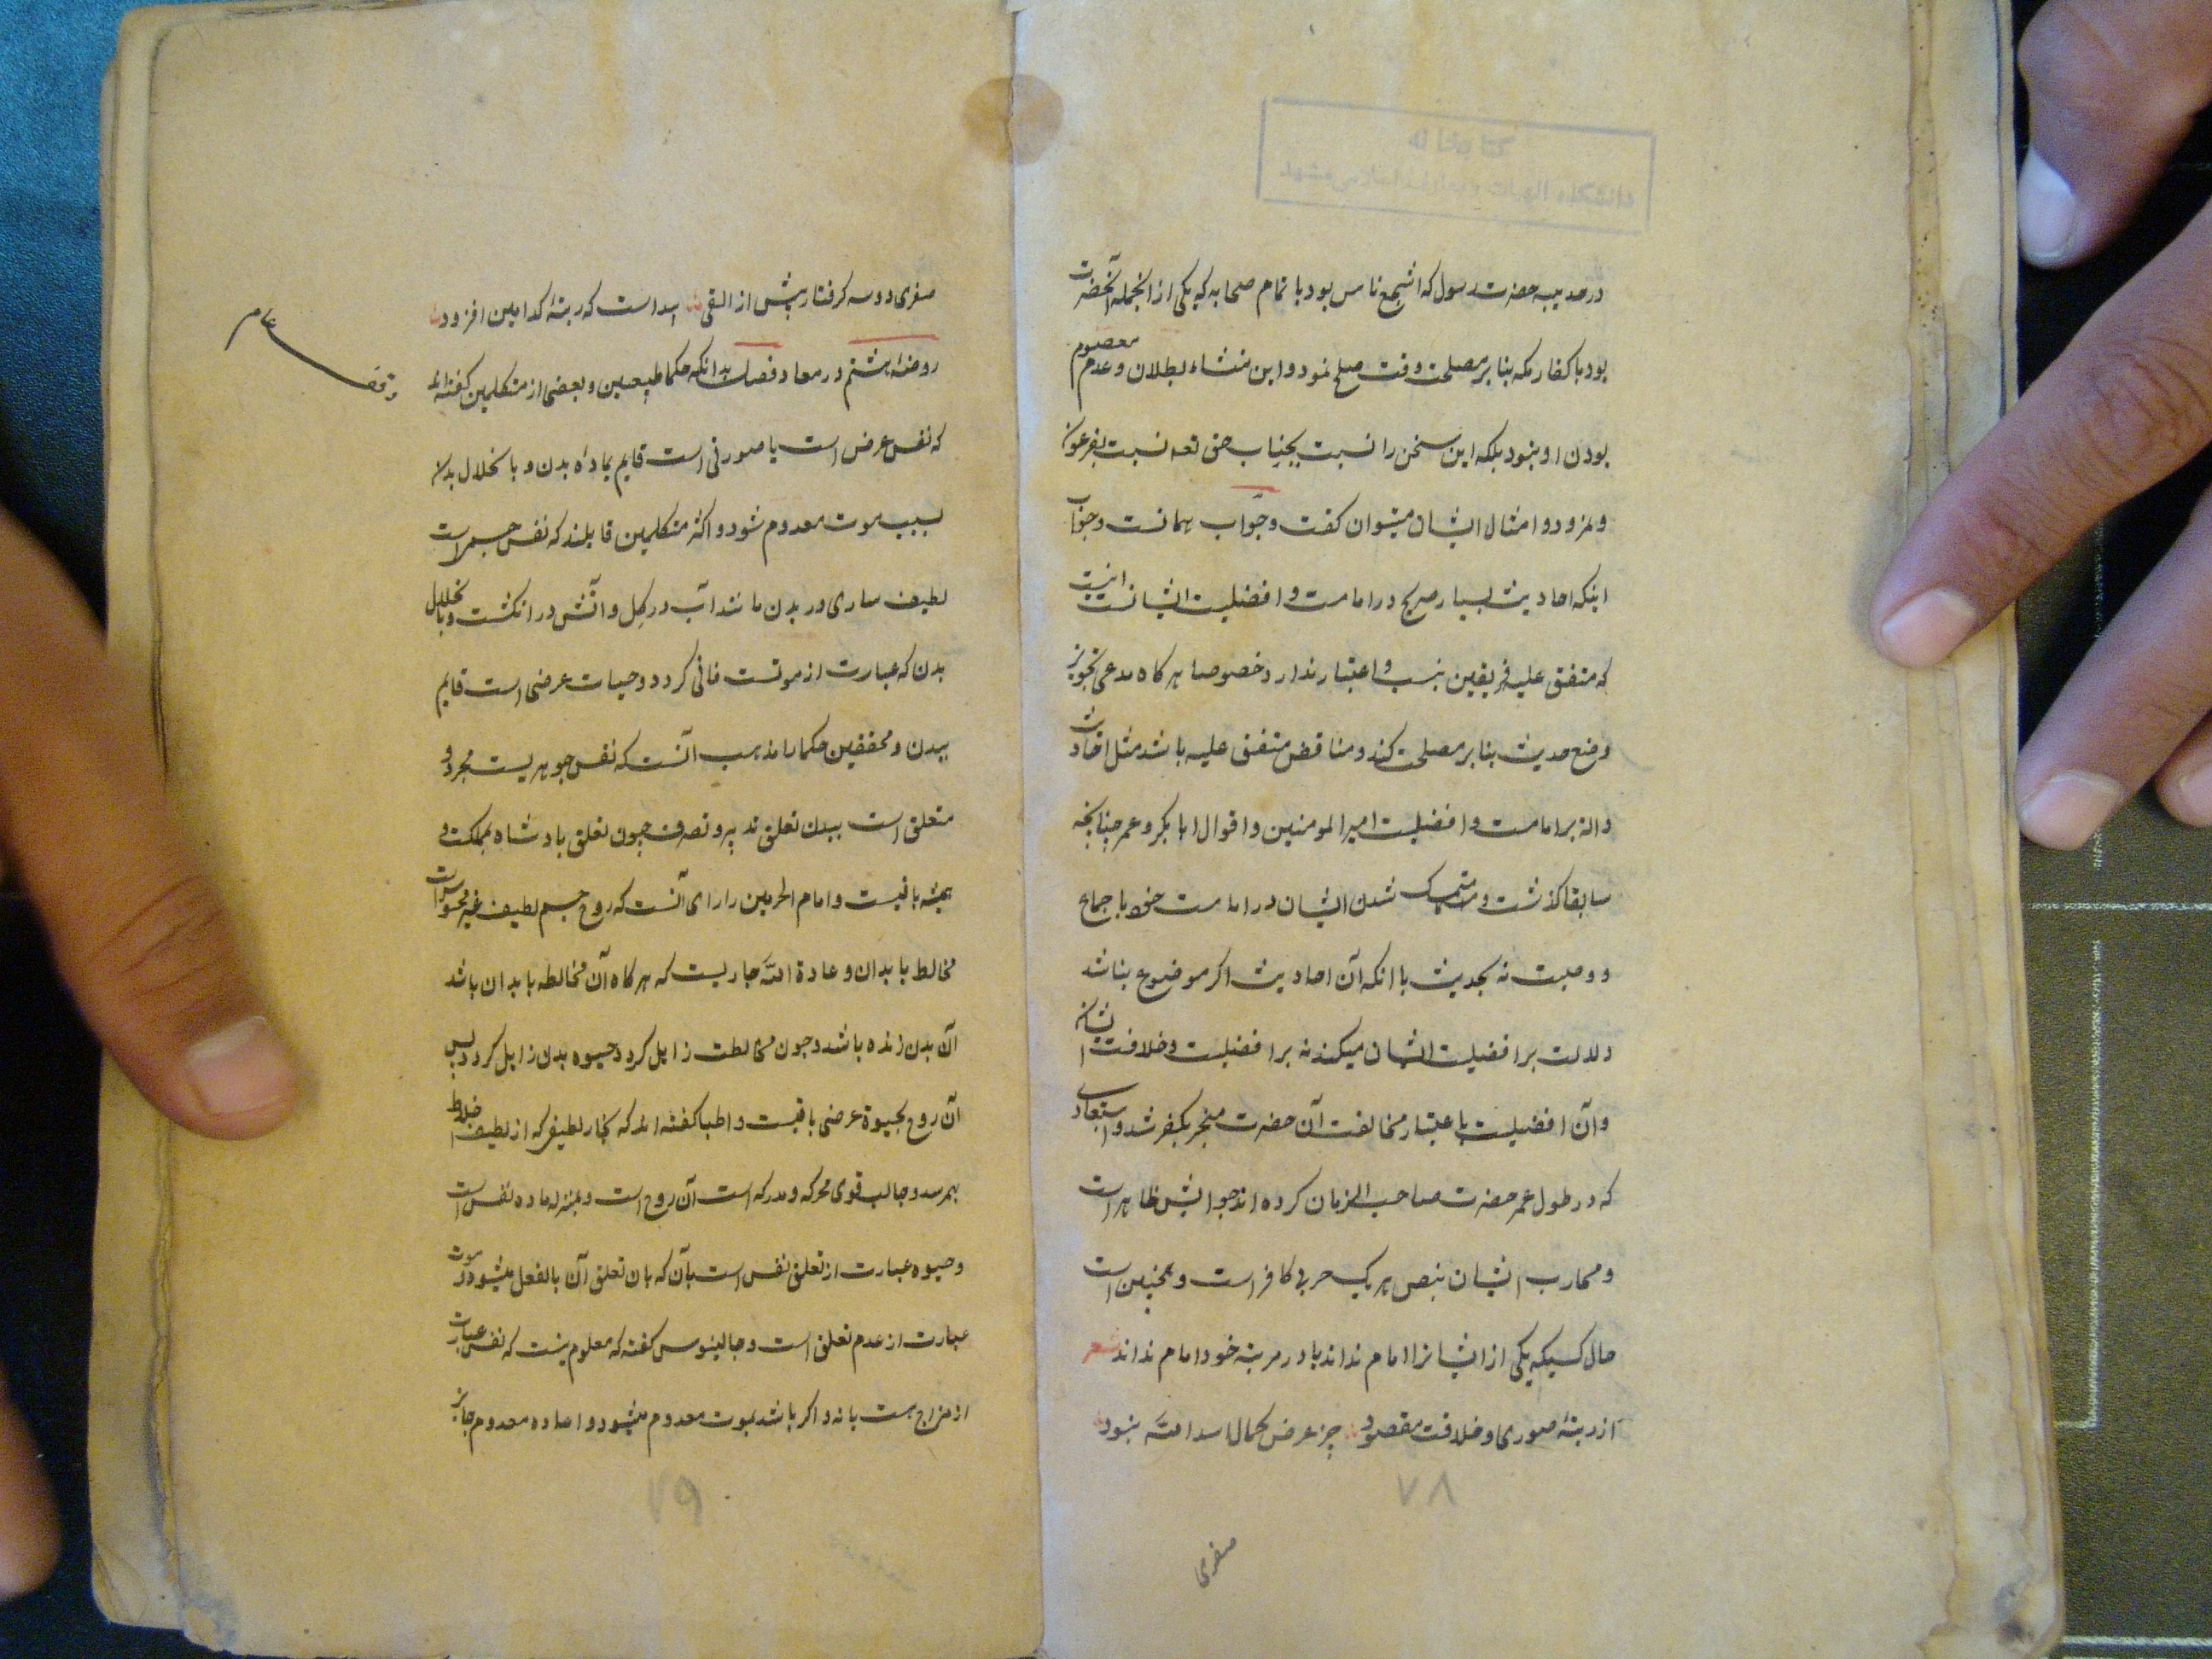 در حدیبیه حضرت رسول که اشجع ناس بود با تمام صحابه که یکی از انجمله آنحضرت
بود با کفار مکه بنا بر مصلحت وقت صلح نمود و این منشاء بطلان و عدم معصوم
بودن او نبود بلکه این سخن را نسبت بجناب حق تعه نسبت بفرعون
و نمرود و امثال ایشان میتوان کفت و جواب همانست و جواب
اینکه احادیث بسیار صریح در امامت و افضلیت ایشانست اینست
که متفق علیه فریقین نیست و اعتبار ندارد خصوصا هرکاه مدعی تجویز
وضع حدیث بنا بر مصلحت کند و مناقض متفق علیه باشد مثل احادیث
دالة بر امامت و افضلیت امیر المومنین و اقوال ابا بکر و عمر چنانچه
سابقا کذشت و متمسک شدن ایشان در امامت خود باجماع
و وصیت نه بحدیث با انکه آن احادیث اکر موضوع نباشد
دلالت بر افضلیت ایشان میکند نه بر افضلیت و خلافت ایشان
و آن افضلیت باعتبار مخالفت آن حضرت منجر بکفر شد و استبعادی
که در طول عمر حضرت صاحب الزمان کرده اند جوابش ظاهر است
و محارب ایشان بنص هریک حربی کافر است و همچنین است
حال کسیکه یکی از ایشانرا امام نداند یا در مرتبه خود امام نداند شعر
از رتبهٔ صوری و خلافت مقصود جز عرض کمال اسد الله نبود
۷۸
صفری
صفری دو سه کر فتاد پیش از الفی اسد است که رتبهٔ کدامین افزود
روضهٔ هشتم در معاد فصل بدانکه حکما طبیعیین و بعضی از متکلمین کفته اند
که نفس عرض است یا صورتی است قایم بمادهٔ بدن و بانحلال بدن
بسبب موت معدوم شود و اکثر متکلمین قایلند که نفس جسم است
لطیف ساری در بدن مانند آب در کل و آتش در انکشت و بانحلال
بدن که عبارت از موتست فانی کردد و حیات عرضی است قایم
ببدن و محققین حکما را مذهب آنست که نفس جوهریست مجرد و
متعلق است ببدن تعلق تدبیر و تصرف چون تعلق پادشاه بمملکت و
همیشه باقیست و امام الحرمین را رای آنست که روح جسم لطیف غیر محسوس است
مخالط بابدان و عادة الله جاریست که هرکاه آن مخالطه بابدان باشد
آن بدن زنده باشد و چون مخالطت زایل کردد حیوه بدن زایل کردد پس
آن روح بحیوة عرضی باقیست و اطبا کفته اند که بخار لطیفی که از لطیف اخلاط
بهمرسد و جالب قوی محرکه و مدرکه است آن روح است و بمنزله ماده نفس است
و حیوه عبارت از تعلق نفس است بآن که بان تعلق آن بالفعل میشود و موت
عبارت از عدم تعلق است و جالینوس کفته که معلوم نیست که نفس عبارت
از مزاج هست یا نه و اکر باشد بموت معدوم میشود و اعاده معدوم جایز
۷۹